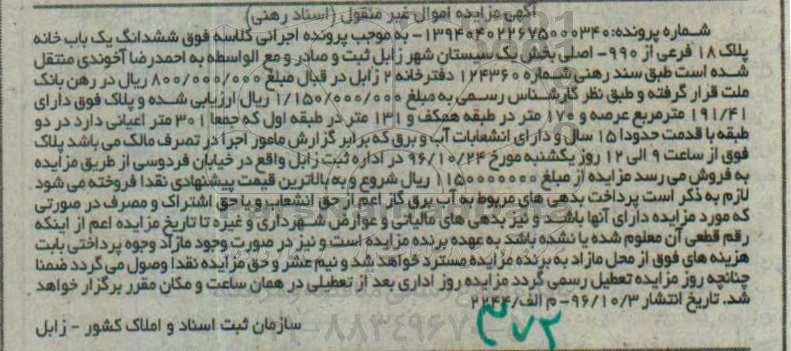 آگهی مزایده اموال غیر منقول (اسناد رهنی)
شماره پرونده: ۱۳۹۴۰۴۰۲۲۶۷۵۰۰۰۳۴۰- به موجب پرونده اجرائی کلاسه فوق ششدانگ یک باب خانه
پلاک ۱۸ فرعی از ۹۹۰- اصلی بخش یک سیستان شهر زابل ثبت و صادر و مع الواسطه به احمدرضا آخوندی منتقل
شده است طبق سند رهنی شماره ۱۲۴۳۶۰ دفترخانه ۲ زابل در قبال مبلغ ۸۰۰/۰۰۰/۰۰۰ ریال در رهن بانک
ملت قرار گرفته و طبق نظر کارشناس رسمی به مبلغ ۱/۱۵۰/۰۰۰/۰۰۰ ریال ارزیابی شده و پلاک فوق دارای
۱۹۱/۴۱ مترمربع عرصه و ۱۷۰ متر در طبقه همکف و ۱۳۱ متر در طبقه اول که جمعا ۳۰۱ متر اعیانی دارد در دو
طبقه با قدمت حدودا ۱۵ سال و دارای انشعابات آب و برق که برابر گزارش مامور اجرا در تصرف مالک می باشد پلاک
فوق از ساعت ۹ الی ۱۲ روز یکشنبه مورخ ۹۶/۱۰/۲۴ در اداره ثبت زابل واقع در خیابان فردوسی از طریق مزایده
به فروش می رسد مزایده از مبلغ ۱۱۵۰۰۰۰۰۰۰ ریال شروع و به بالاترین قیمت پیشنهادی نقدا فروخته می شود
لازم به ذکر است پرداخت بدهی های مربوط به آب برق گاز اعم از حق انشعاب و یا حق اشتراک و مصرف در صورتی
که مورد مزایده دارای آنها باشد و نیز بدهی های مالیاتی و عوارض شهرداری و غیره تا تاریخ مزایده اعم از اینکه
رقم قطعی آن معلوم شده یا نشده باشد به عهده برنده مزایده است و نیز در صورت وجود مازاد وجوه پرداختی بابت
هزینه های فوق از محل مازاد به برنده مزایده مسترد خواهد شد و نیم عشر و حق مزایده نقدا وصول می گردد ضمنا
چنانچه روز مزایده تعطیل رسمی گردد مزایده روز اداری بعد از تعطیلی در همان ساعت و مکان مقرر برگزار خواهد
شد. تاریخ انتشار ۹۶/۱۰/۳- م الف/۲۲۴۴
سازمان ثبت اسناد و املاک کشور - زابل
۳۷۲